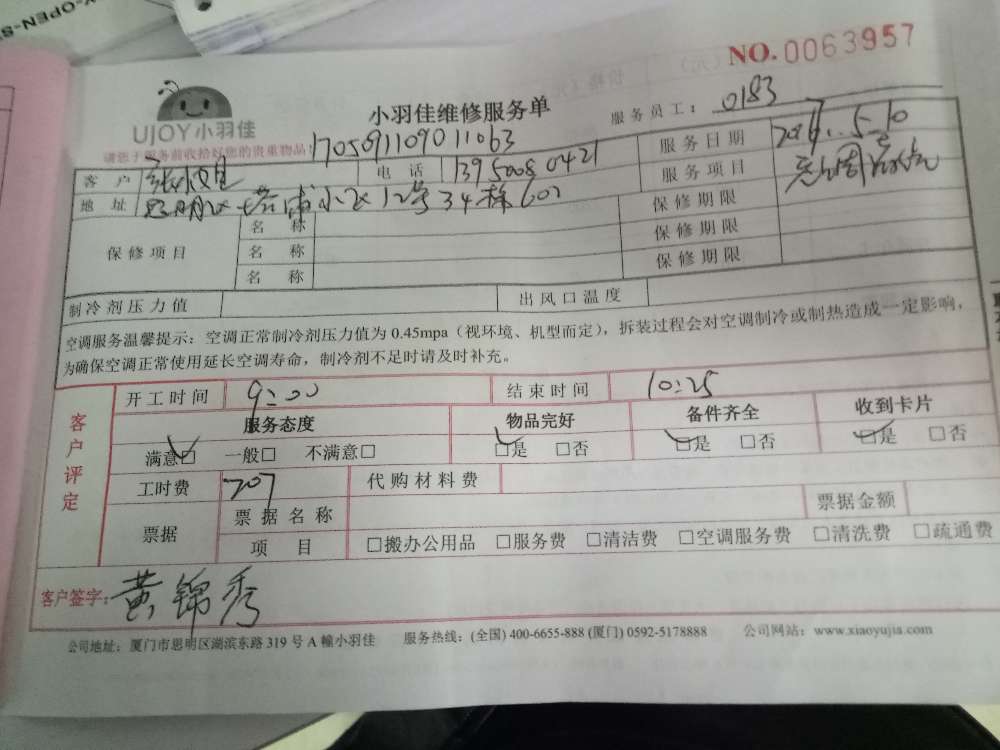 -OPEN-S
NO.0063957
UJOY小羽佳
小羽佳维修服务单
服务员工： 0183
请您于服务前收拾好您的贵重物品：170591109011063
客户 电话 13950080421 服务日期 5.10
地址 思明区塔埔小区12号34栋602 服务项目
保修项目 名称 保修期限
名称 保修期限
名称 保修期限
制冷剂压力值 出风口温度
空调服务温馨提示：空调正常制冷剂压力值为 0.45mpa（视环境、机型而定），拆装过程会对空调制冷或制热造成一定影响，
为确保空调正常使用延长空调寿命，制冷剂不足时请及时补充。
客户评定
开工时间 9:00 结束时间 10:25
服务态度 物品完好 备件齐全 收到卡片
满意□ 一般□ 不满意□ □是 □否 □是 □否 □是 □否
工时费 707 代购材料费
票据 票据名称 票据金额
项目 □搬办公用品 □服务费 □清洁费 □空调服务费 □清洗费 □疏通费
客户签字：黄锦秀
公司地址：厦门市思明区湖滨东路 319 号 A 幢小羽佳 服务热线：(全国) 400-6655-888 (厦门) 0592-5178888 公司网站：www.xiaoyujia.com